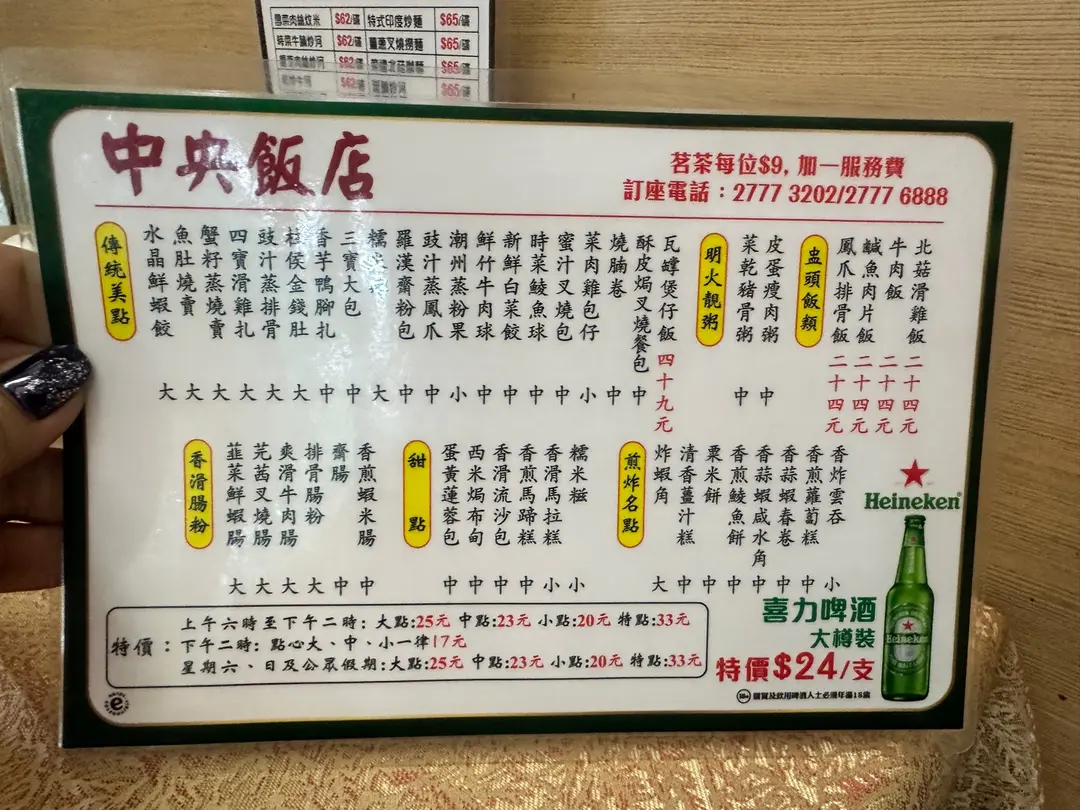 $62/碟 特式印度炒麵 $65/碟
$62/碟 薑蔥叉燒撈麵 $65/碟
$62/碟 $65/碟
$62/碟 $65/碟
中央飯店
茗茶每位$9, 加一服務費
訂座電話：2777 3202/2777 6888
傳統美點
水晶鮮蝦餃 大
魚肚燒賣 大
蟹籽蒸燒賣 大
四寶滑雞扎 大
豉汁蒸排骨 大
柱侯金錢肚 大
香芋鴨腳扎 中
三寶大包 中
糯米 大
羅漢齋粉包 中
豉汁蒸鳳爪 中
潮州蒸粉果 小
鮮竹牛肉球 中
新鮮白菜餃 中
時菜鯪魚球 中
蜜汁叉燒包 中
菜肉雞包仔 小
燒腩卷 中
酥皮焗叉燒餐包 中
瓦罉煲仔飯 四十九元
明火靚粥
菜乾豬骨粥 中
皮蛋瘦肉粥 中
盅頭飯類
鳳爪排骨飯 二十四元
鹹魚肉片飯 二十四元
牛肉飯 二十四元
北菇滑雞飯 二十四元
香滑腸粉
韮菜鮮蝦腸 大
芫茜叉燒腸 大
爽滑牛肉腸 大
排骨腸粉 大
齋腸 中
香煎蝦米腸 中
甜點
蛋黃蓮蓉包 中
西米焗布甸 中
香滑流沙包 中
香煎馬蹄糕 中
香滑馬拉糕 小
糯米糍 小
煎炸名點
炸蝦角 大
清香薑汁糕 中
粟米餅 中
香煎鯪魚餅 中
香蒜蝦咸水角 中
香蒜蝦春卷 中
香煎蘿蔔糕 中
香炸雲吞 小
Heineken
Heineken
喜力啤酒
大樽裝
特價$24/支
18+ 購買及飲用啤酒人士必須年滿18歲
特價：
上午六時至下午二時: 大點:25元 中點:23元 小點:20元 特點:33元
下午二時: 點心大、中、小一律17元
星期六、日及公眾假期:大點:25元 中點:23元 小點:20元 特點:33元